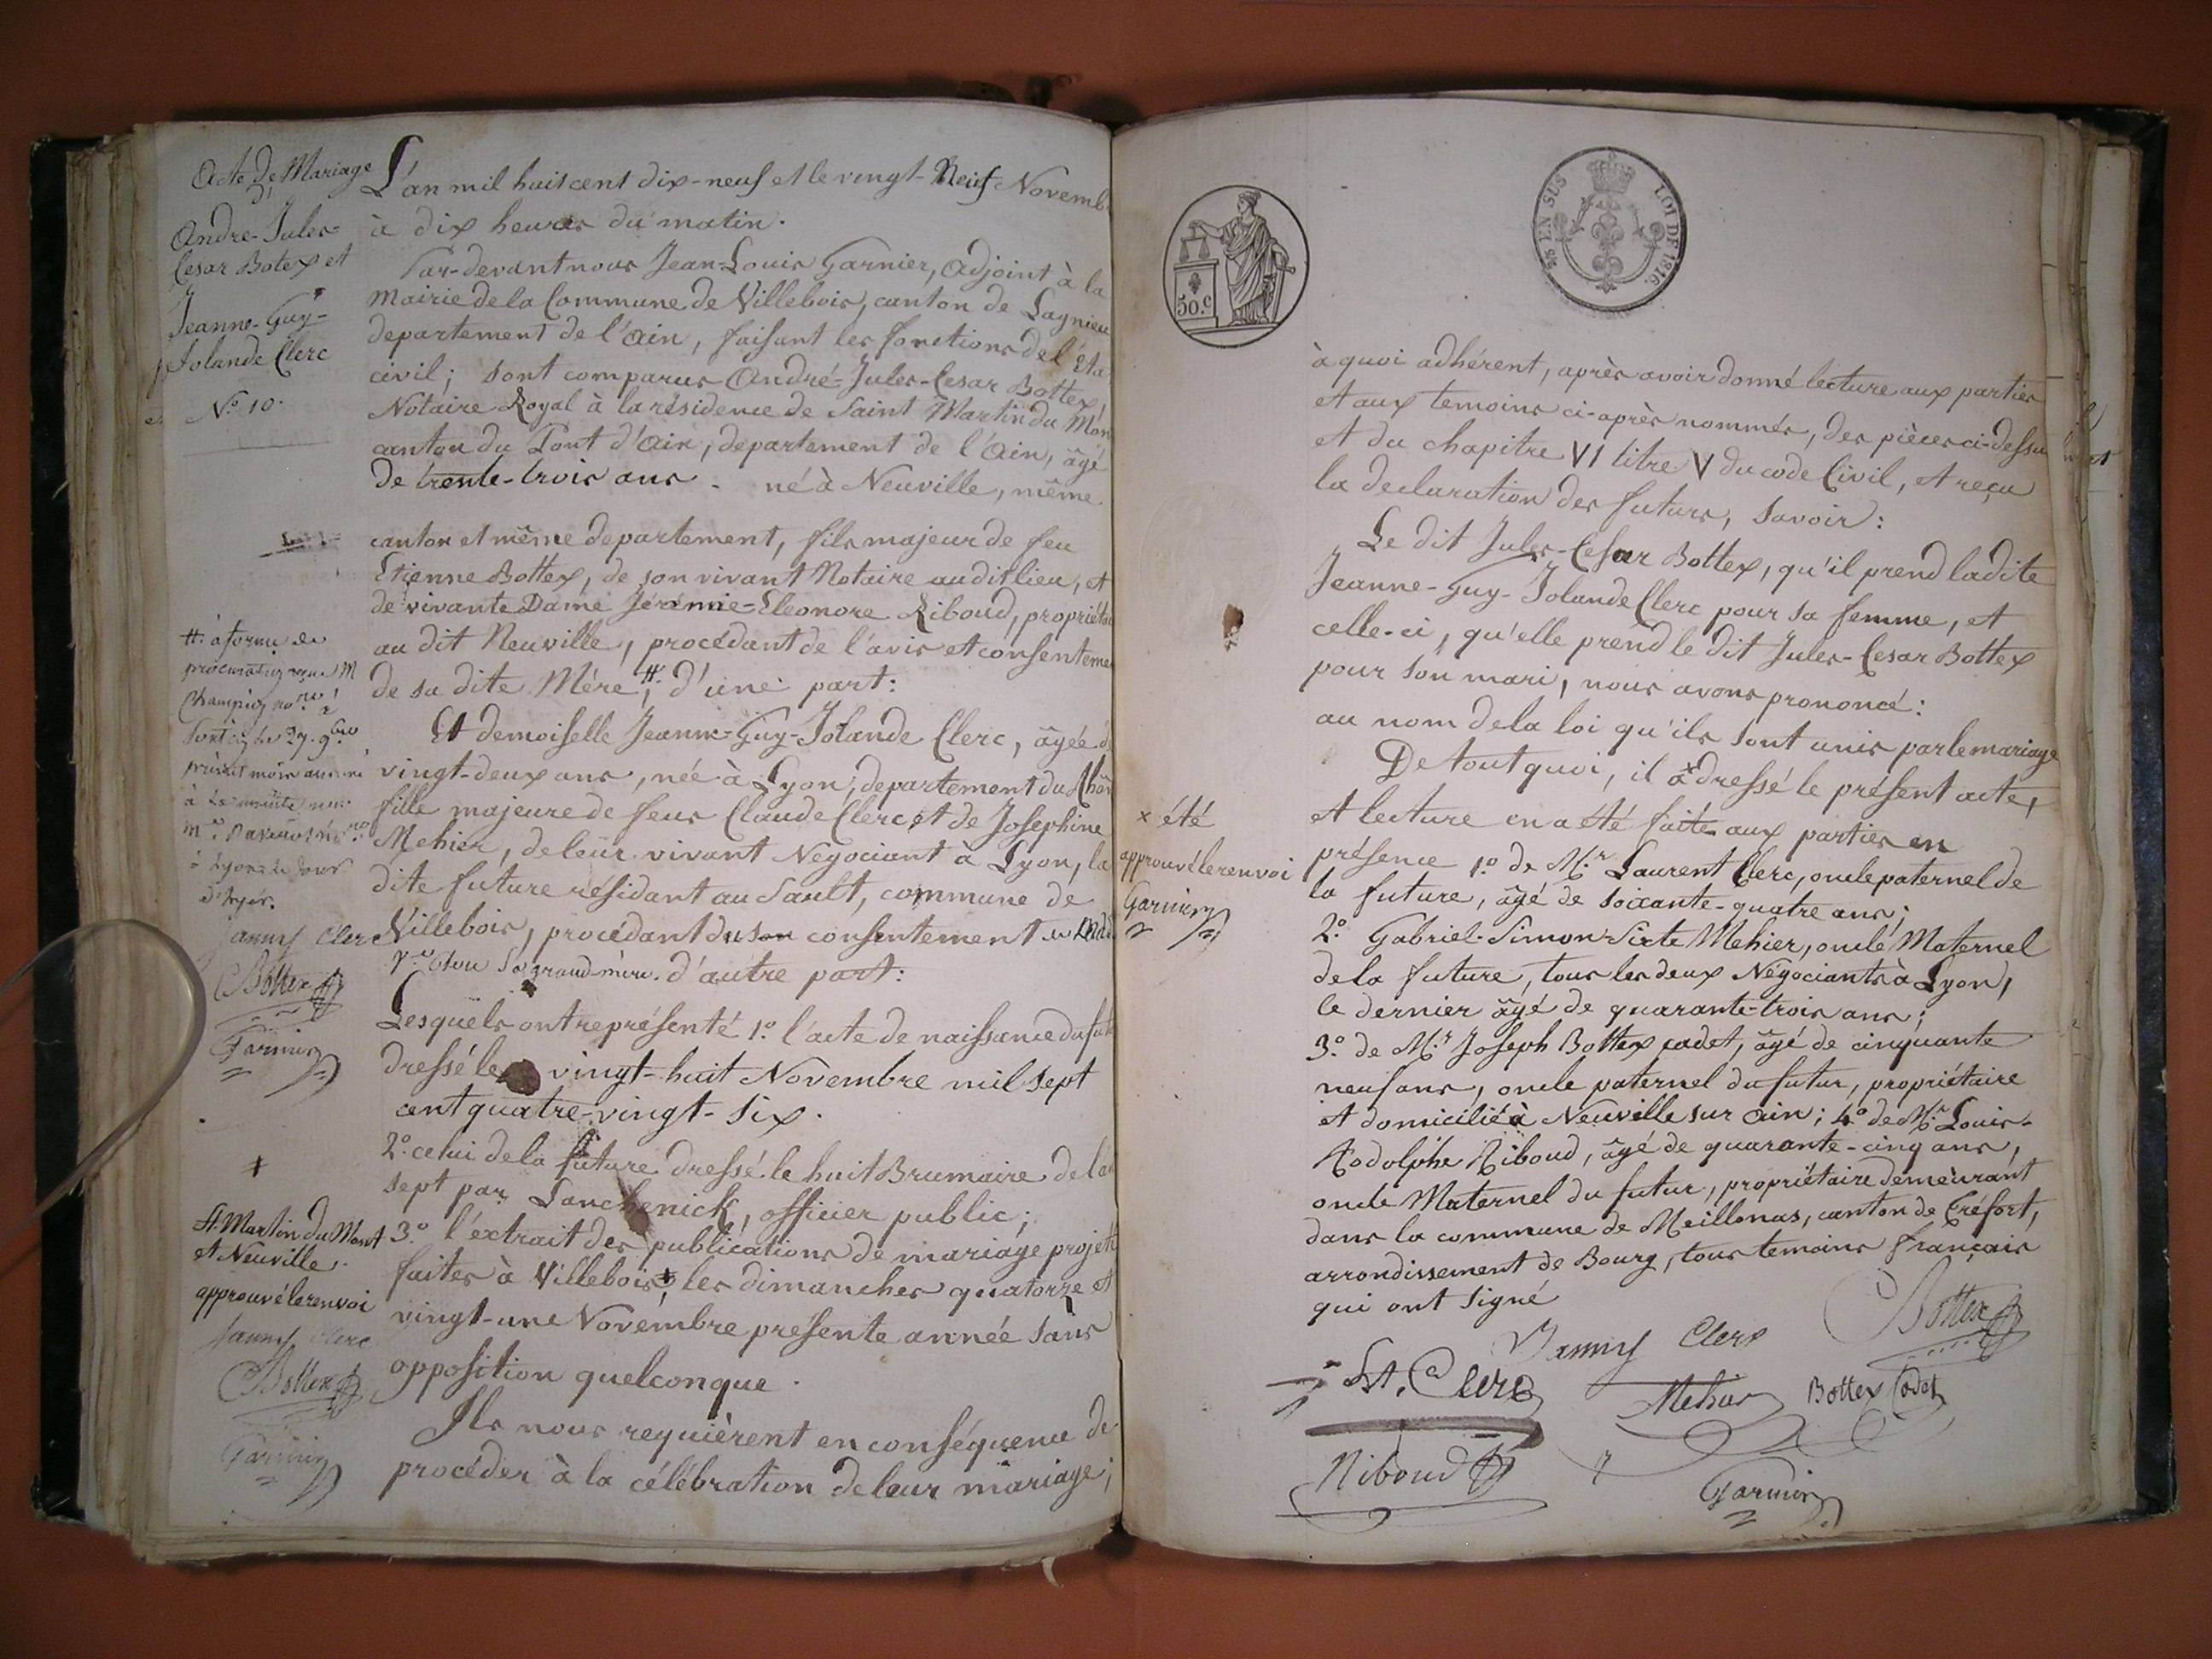 Acte de Mariage
D'
André-Jules-
Cesar Botex et
Jeanne-Guy-
Iolande Clerc
N.º 10.
L'an mil huit cent dix-neuf et le vingt-Neuf Novemb
à dix heures du matin.
Par-devant nous Jean-Louis Garnier, adjoint à la
Mairie de la Commune de Villebois, canton de Lagnieu
departement de l'ain, faisant les fonctions de l'éta
civil; sont comparus André-Jules-Cesar Bottex,
Notaire Royal à la résidence de Saint Martin du Mon
canton du Pont d'ain, departement de l'Ain, âgé
de trente-trois ans - né à Neuville, même
canton et même departement, fils majeur de feu
Etienne Bottex, de son vivant Notaire au dit lieu, et
de vivante Dame Jérémie-Eleonore Riboud, propriéta
au dit Neuville, procédant de l'avis et consenteme
de sa dite Mère, #. d'une part:
Et demoiselle Jeanne-Guy-Iolande Clerc, âgée d
vingt-deux ans, née à Lyon, departement du Rhôn
fille majeure de feus Claude Clerc et de Josephine
Mehier, de leur vivant Negociant à Lyon, la
dite future résidant au Sault, commune de
Villebois, procédant du son consentement
sa grand-mère. d'autre part:
Lesquels ont représenté 1.º l'acte de naissance du fut
dressé le vingt-huit Novembre mil sept
cent quatre-vingt-six.
2.º celui de la future dressé le huit Brumaire de l'a
sept par Lanchenick, officier public;
3.º l'extrait des publications de mariage projet
faites à Villebois ⧧, les dimanches quatorze et
vingt-une Novembre présente année sans
opposition quelconque.
Ils nous requièrent en conséquence de
procéder à la célébration de leur mariage;
#. à forme de
procuration reçue M
à Lyon le jour
d'hyér.
fanny Clerc
Bottex
Garnier
⧧
St. Martin du Mont
et Neuville.
approuvé le renvoi
fanny Clerc
Bottex
Garnier
50.c
EN SUS LOI DE 1816.
à quoi adhérent, après avoir donné lecture aux parties
et aux temoins ci-après nommés, des pièces ci-dessu
et du chapitre VI titre V du code Civil, et reçu
la declaration des futurs, savoir:
Le dit Jules-Cesar Bottex, qu'il prend la dite
Jeanne-Guy-Iolande Clerc pour sa femme, et
celle-ci, qu'elle prend le dit Jules-Cesar Bottex
pour son mari, nous avons prononcé:
au nom de la loi qu'ils sont unis par le mariage
De tout quoi, il a × dressé le présent acte,
et lecture en a été faite aux parties en
présence 1.º de M.r Laurent Clerc, oncle paternel de
la future, âgé de soixante-quatre ans;
2.º Gabriel-Simon Sixte Mehier, oncle Maternel
de la future, tous les deux Négociants à Lyon,
le dernier âgé de quarante-trois ans;
3.º de M.r Joseph Bottex cadet, âgé de cinquante
neuf ans, oncle paternel du futur, propriétaire
et domicilié à Neuville sur ain; 4.º de M.r Louis-
Rodolphe Riboud, âgé de quarante-cinq ans,
oncle Maternel du futur, propriétaire demeurant
dans la commune de Meillonas, canton de Tréfort,
arrondissement de Bourg, tous temoins français
qui ont signé
× été
approuvé le renvoi
Garnier
Bottex
fanny Clerc
Lt. Clerc
Mehier
Bottex Cadet
Riboud
Garnier